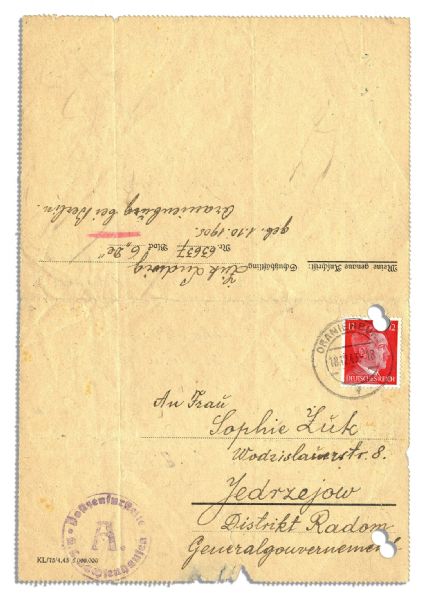 Meine genaue Anschrift:
Schutzhäftling Żuk Ludwig
Nr. 63637 Block 6 „2e“
geb. 1.10.1905.
Oranienburg bei Berlin.
ORANIENB
DEUTSCHES REICH
12
An Frau
Sophie Żuk
Wodzislauerstr. 8.
Jedrzejow
Distrikt Radom
Generalgouvernement
Postzensurstelle
A.
KL/75/4.43 5 000.000